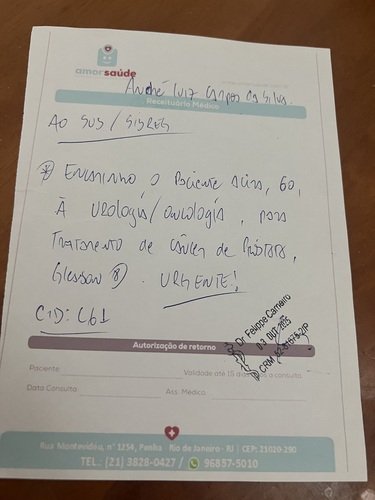 amorsaúde
André Luiz Campos da Silva.
Receituário Médico
AO SUS / SISREG
Encaminho o Paciente acima, 60,
À Urologia/oncologia, para
Tratamento de câncer de Próstata,
Gleason 8. URGENTE!
CID: C61
Dr Felippe Carneiro
03 OUT 2025
CRM
Autorização de retorno
Paciente:
Validade até 15 d a consulta.
Data Consulta:
Ass. Médico:
Rua Montevidéu, n° 1254, Penha - Rio de Janeiro - RJ | CEP: 21020-290
TEL.: (21) 3828-0427 / 96857-5010